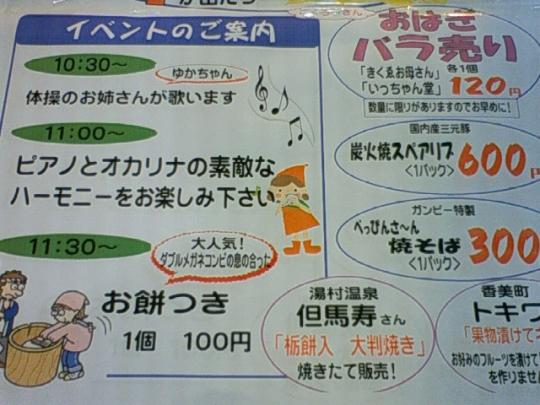 イベントのご案内
10:30～
ゆかちゃん
体操のお姉さんが歌います
11:00～
ピアノとオカリナの素敵な
ハーモニーをお楽しみ下さい
11:30～
大人気！
ダブルメガネコンビの息の合った
お餅つき
1個 100円
おはぎ
バラ売り
「きくゑお母さん」
「いっちゃん堂」
各1個
120円
数量に限りがありますのでお早めに！
国内産三元豚
炭火焼スペアリブ
<1パック>
600円
ガンピー特製
べっぴんさ～ん
焼そば
<1パック>
300
湯村温泉
但馬寿さん
「栃餅入 大判焼き」
焼きたて販売！
香美町
トキワ
「果物漬けてキ
お好みのフルーツを漬けて
を作りませ